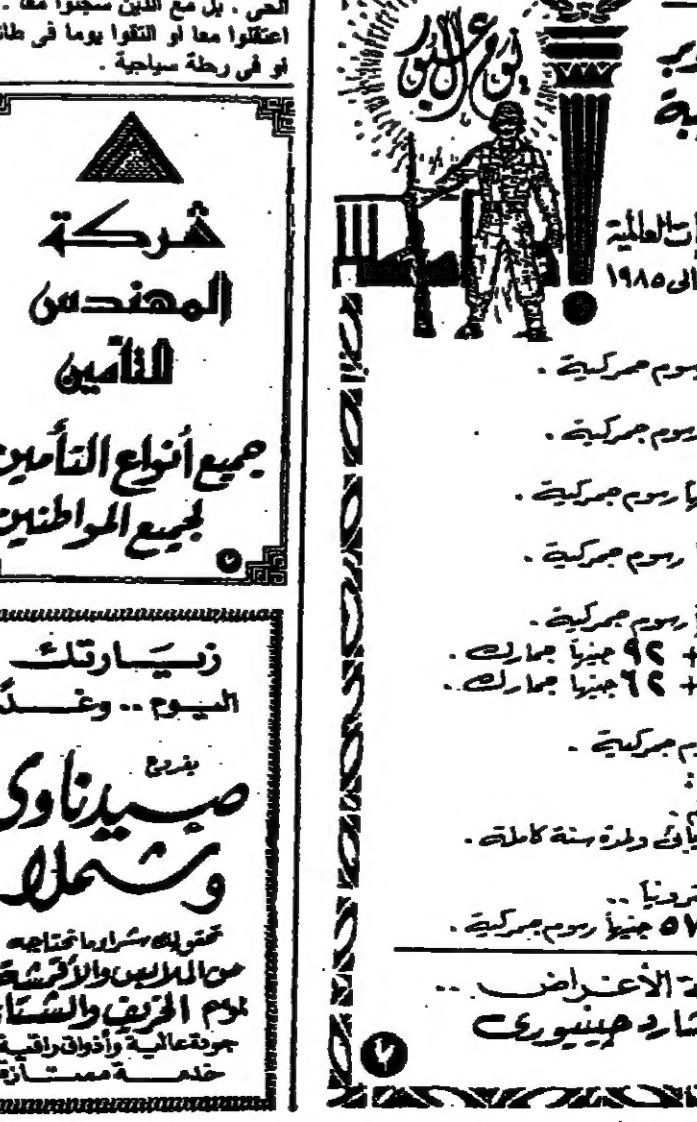 الحى . بل مع الذين سجنوا معا .
اعتقلوا معا أو التقوا يوما فى
أو فى رحلة سياحية .
شركة
المهندس
للتأمين
جميع أنواع التأمين
لجميع المواطنين
٧
زيارتك
اليوم .. وغداً
بفروع
صيدناوى
وشملا
تحقق لك شراء ما تحتاجه
من الملابس والأقمشة
الخريف والشتاء
جودة عالية وأذواق راقية
خدمة ممتازة
يوم العبور
العالمية
الى ١٩٨٥
رسوم جمركية .
رسوم جمركية .
رسوم جمركية .
رسوم جمركية .
رسوم جمركية .
+ ٩٢ جنيهاً جمارك .
+ ٦٢ جنيهاً جمارك .
جمركية .
ولمدة سنة كاملة .
٥٧ جنيهاً رسوم جمركية .
الأغراض ..
٧